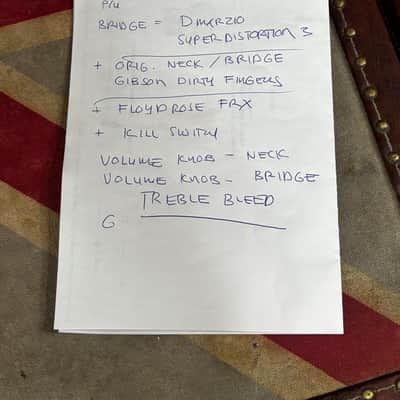 P/U
BRIDGE = DIMARZIO
SUPER DISTORTION 3
+ ORIG. NECK / BRIDGE
GIBSON DIRTY FINGERS
+ FLOYD ROSE FRX
+ KILL SWITCH
VOLUME KNOB - NECK
VOLUME KNOB - BRIDGE
TREBLE BLEED
G